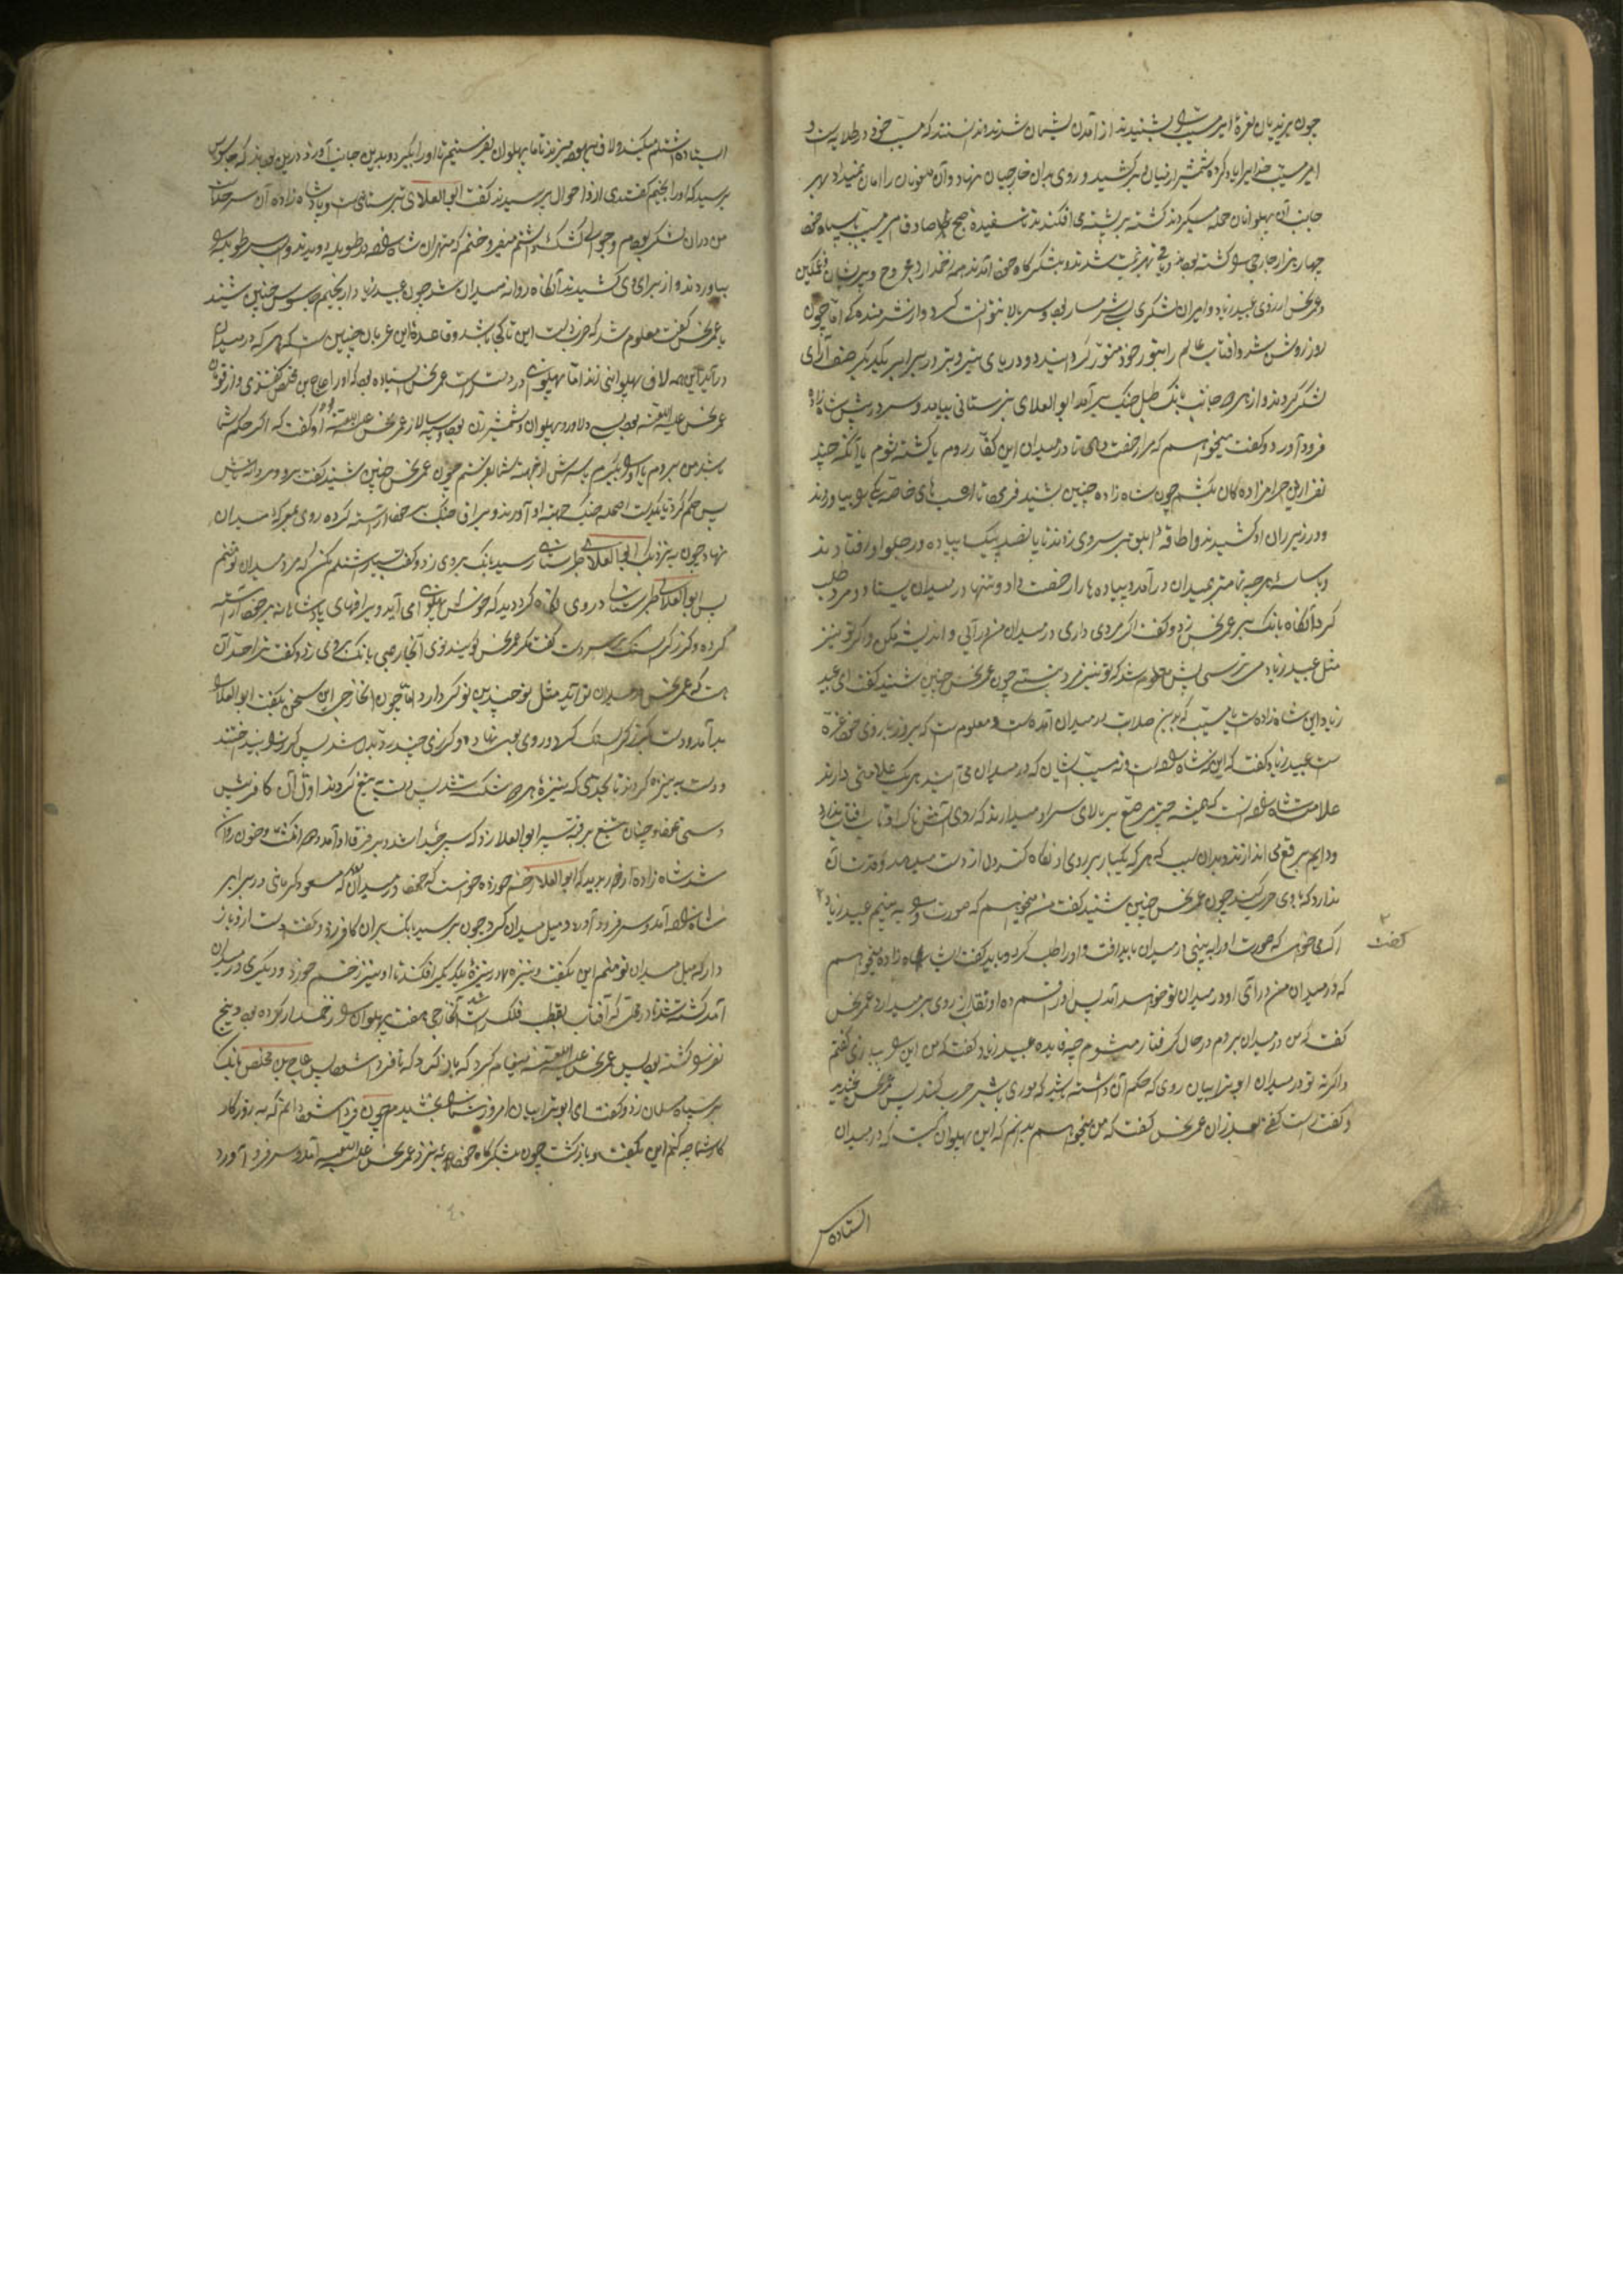 چون یزیدیان نعرهٔ امیر مسیب بشنیدند از آمدن پشیمان شدند و دانستند که مسیب خود در طلایه است و
امیر مسیب خدایرا یاد کرده شمشیر از میان بر کشید و روی بدان خارجیان نهاد و آن ملعونان را امان نمیداد و هر
جانب آن پهلوانان حمله میکردند کشته بر پشته می افکندند تا سفیدهٔ صبح صادق امیر مسیب با سپاه خود
چهار هزار خارجی کشته بودند و باقی بهزیمت شدند و بلشکرگاه خود آمدند همه زخمدار و مجروح و پریشان و غمگین
و عمر نحس از روی عبید زیاد و امیران لشکر بسی شرمسار بود و سر بالا نتوانست کرد و از شرمندکی اما چون
روز روشن شد و آفتاب عالم را بنور خود منور گردانید دو دریای در برابر یکدیکر صف آرای
لشکر کردند و از هر دو جانب بانک طبل جنک بر آمد ابوالعلای تبرستانی بیامد و سر در پیش شاه زاده
فرود آورد و کفت میخواهم که مرا رخصت دهی تا در میدان این کفار روم یا کشته شوم یا آنکه چند
نفر ازین حرامزاده کان بکشم چون شاه زاده چنین بشنید فرمود تا اسب های خاصه بیاوردند
و در زیر ران او کشیدند و اطاقه ابلق بر سر وی زدند تا پانصد پیک پیاده در جلو او افتادند
و با هر چه تمامتر بمیدان در آمد و پیاده ها را رخصت داد و تنها در میدان بیستاد و مرد طلب
کرد آنکاه بانک بر عمر نحس زد و کفت اکر مردی داری در میدان من در آی و اندیشه مکن و اکر تو نیز
مثل عبید زیاد می ترسی پس معلوم شد که تو نیز مرد نیستی چون عمر نحس چنین شنید کفت ای عبید
زیاد این شاه زاده است یا مسیب که بدین صلابت در میدان آمده است و معلوم است که بزور بازوی خود غره
است عبید زیاد کفت که این نه شاه زاده است و نه مسیب اینان که در میدان می آیند هر یک علامتی دارند
علامت شاه زاده آنست که همیشه چتر مرصع بر بالای سر او میدارند که روی
و دایم برقع می اندازند بدان سبب که هر که یکبار بر روی او نکاه کند دل از دست میدهد و قدرت آن
ندارد که با وی حرب کند چون عمر نحس چنین شنید کفت من میخواهم که صورت او به بینم عبید زیاد
کفت
اکر میخواهی که صورت او را به بینی در میدان باید رفت و او را طلب کرد و باید کفت ای شاه زاده میخواهم
که در میدان من در آی او در میدان تو خواهد آمد پس او را قسم ده او نقاب از روی بر میدارد عمر نحس
کفت که من در میدان بروم در حال کرفتار میشوم چه فایده عبید زیاد کفت که من این ببازی کفتم
و اکر نه تو در میدان ابو ترابیان روی که حکم آن داشته باشد که موری با شیر حرب کند پس عمر نحس بخندید
و کفت راست کفتی بعد از آن عمر نحس کفت که من میخواهم بدانم که این پهلوان کیست که در میدان
ایستاده
ایستاده اشتلم میکند و لاف بیهوده میزند تا ما پهلوان بفرستیم تا او را بگیرد و بدین جانب آورد درین بودند که جاسوس
برسید که او را انجیم کفتندی از و احوال پرسیدند کفت ابوالعلای تبرستانیست و پادشاه زاده آن سر حدات
من در آن لشکر بودم
بیاوردند و از برای وی کشیدند آنکاه روانه میدان شد چون عبید زیاد از انجیم جاسوس چنین شنید
با عمر نحس کفت معلوم شد که این تا کی باشد و قاعدهٔ این عربان چنین است که هر که در میدان
در آید این همه لاف پهلوانی زند اما پهلوانی در دست راست عمر نحس ایستاده بود که او را عاج بن مخلص کفتندی و از قومان
عمر نحس علیه اللعنه بود بسی دلاور و پهلوان و شمشیر زن بود و سپه سالار عمر نحس علیه اللعنه بود او کفت که اکر حکم شما
باشد من بروم یا او را بکیرم یا سرش از جهت شما بفرستم چون عمر نحس چنین شنید کفت برو و مردانه باش
پس حکم کرد تا یکدست اسلحه جنک جهت او آوردند و یراق جنک بر خود آراسته کرده روی بمعرکه میدان
نهاد چون به نزدیک ابوالعلای طبرستانی رسید بانک بر وی زد و کفت بسیار اشتلم مکن که مرد میدان تو منم
پس ابوالعلای طبرستانی در وی نکاه کرد دید که خوش پهلوانی می آید و یراقهای پادشاهانه بر خود آراسته
کرده و کرز کران سنک بر دست کفت مکر عمر نحس لعین توی آن خارجی بانک بر وی زد و کفت ترا حد آن
هست که عمر نحس در میدان تو آید مثل تو چندین نوکر دارد اما چون آن خارجی این سخن بکفت ابوالعلا
بر آمد و دست بکرز کران سنک کرد و روی بوی نهاد و کرزی چند رد و بدل شد پس کرزها بینداختند
و دست به نیزه کردند تا بحدی که نیزهٔ هر دو شکست شد پس دست به تیغ کردند اول آن کافر پیش
دستی نمود و چنان تیغ بر قبهٔ سپر ابوالعلا زد که سپر جدا شد و بر فرق او آمد و خون روان
شد شاه زاده از دور بدید که ابوالعلا زخم خورده خواست که خود در میدان آید که مسعود کرمانی در برابر
شاه زاده آمد و سر فرود آورد و میل میدان کرد چون برسید بانک بر آن کافر زد و کفت دست از و باز
دار که میل میدان تو منم این بکفت و نیزه در نیزهٔ یکدیکر افکندند تا او نیز زخم خورد و دیکری در میدان
آمد کشته شد تا در وقتی که آفتاب بقطب فلک راست شد آن خارجی هفت پهلوان را زخمدار کرده بود و پنج
نفر کشته بود پس عمر نحس علیه اللعنه پیغام کرد که باز کرد که تا فردا شود پس عاج بن مخلص بانک
بر سپاه مسلمانان زد و کفت ای ابو ترابیان امروز شما را بخشیدم چون فردا شود دانم که به روزکار
کار شما چه کنم این بکفت و باز کشت چون بلشکرکاه خود به نزد عمر نحس علیه اللعنه آمد و سر فرود آورد